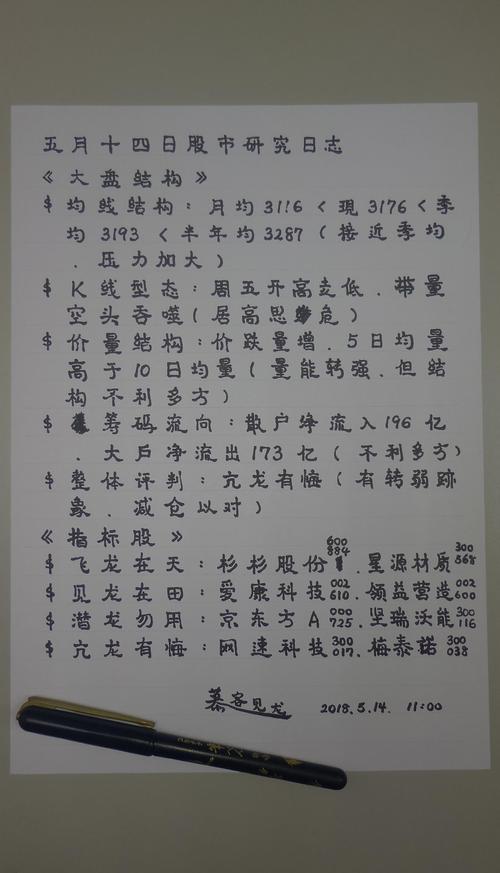 五月十四日股市研究日志
《大盘结构》
$ 均线结构：月均3116＜現3176＜季
均3193＜半年均3287（接近季均
．压力加大）
$ K线型态：周五开高走低．带量
空头吞噬（居高思危）
$ 价量结构：价跌量增．5日均量
高于10日均量（量能转强．但结
构不利多方）
$ 筹码流向：散户净流入196亿
．大戶净流出173亿（不利多方）
$ 整体评判：亢龙有悔（有转弱跡
象．减仓以对）
《指标股》
$ 飞龙在天：杉杉股份600884．星源材质300568
$ 见龙在田：爱康科技002610．领益营造002600
$ 潜龙勿用：京东方A000725．坚瑞沃能300116
$ 亢龙有悔：网速科技300017．梅泰诺300038
慕容见龙 2018.5.14. 11:00